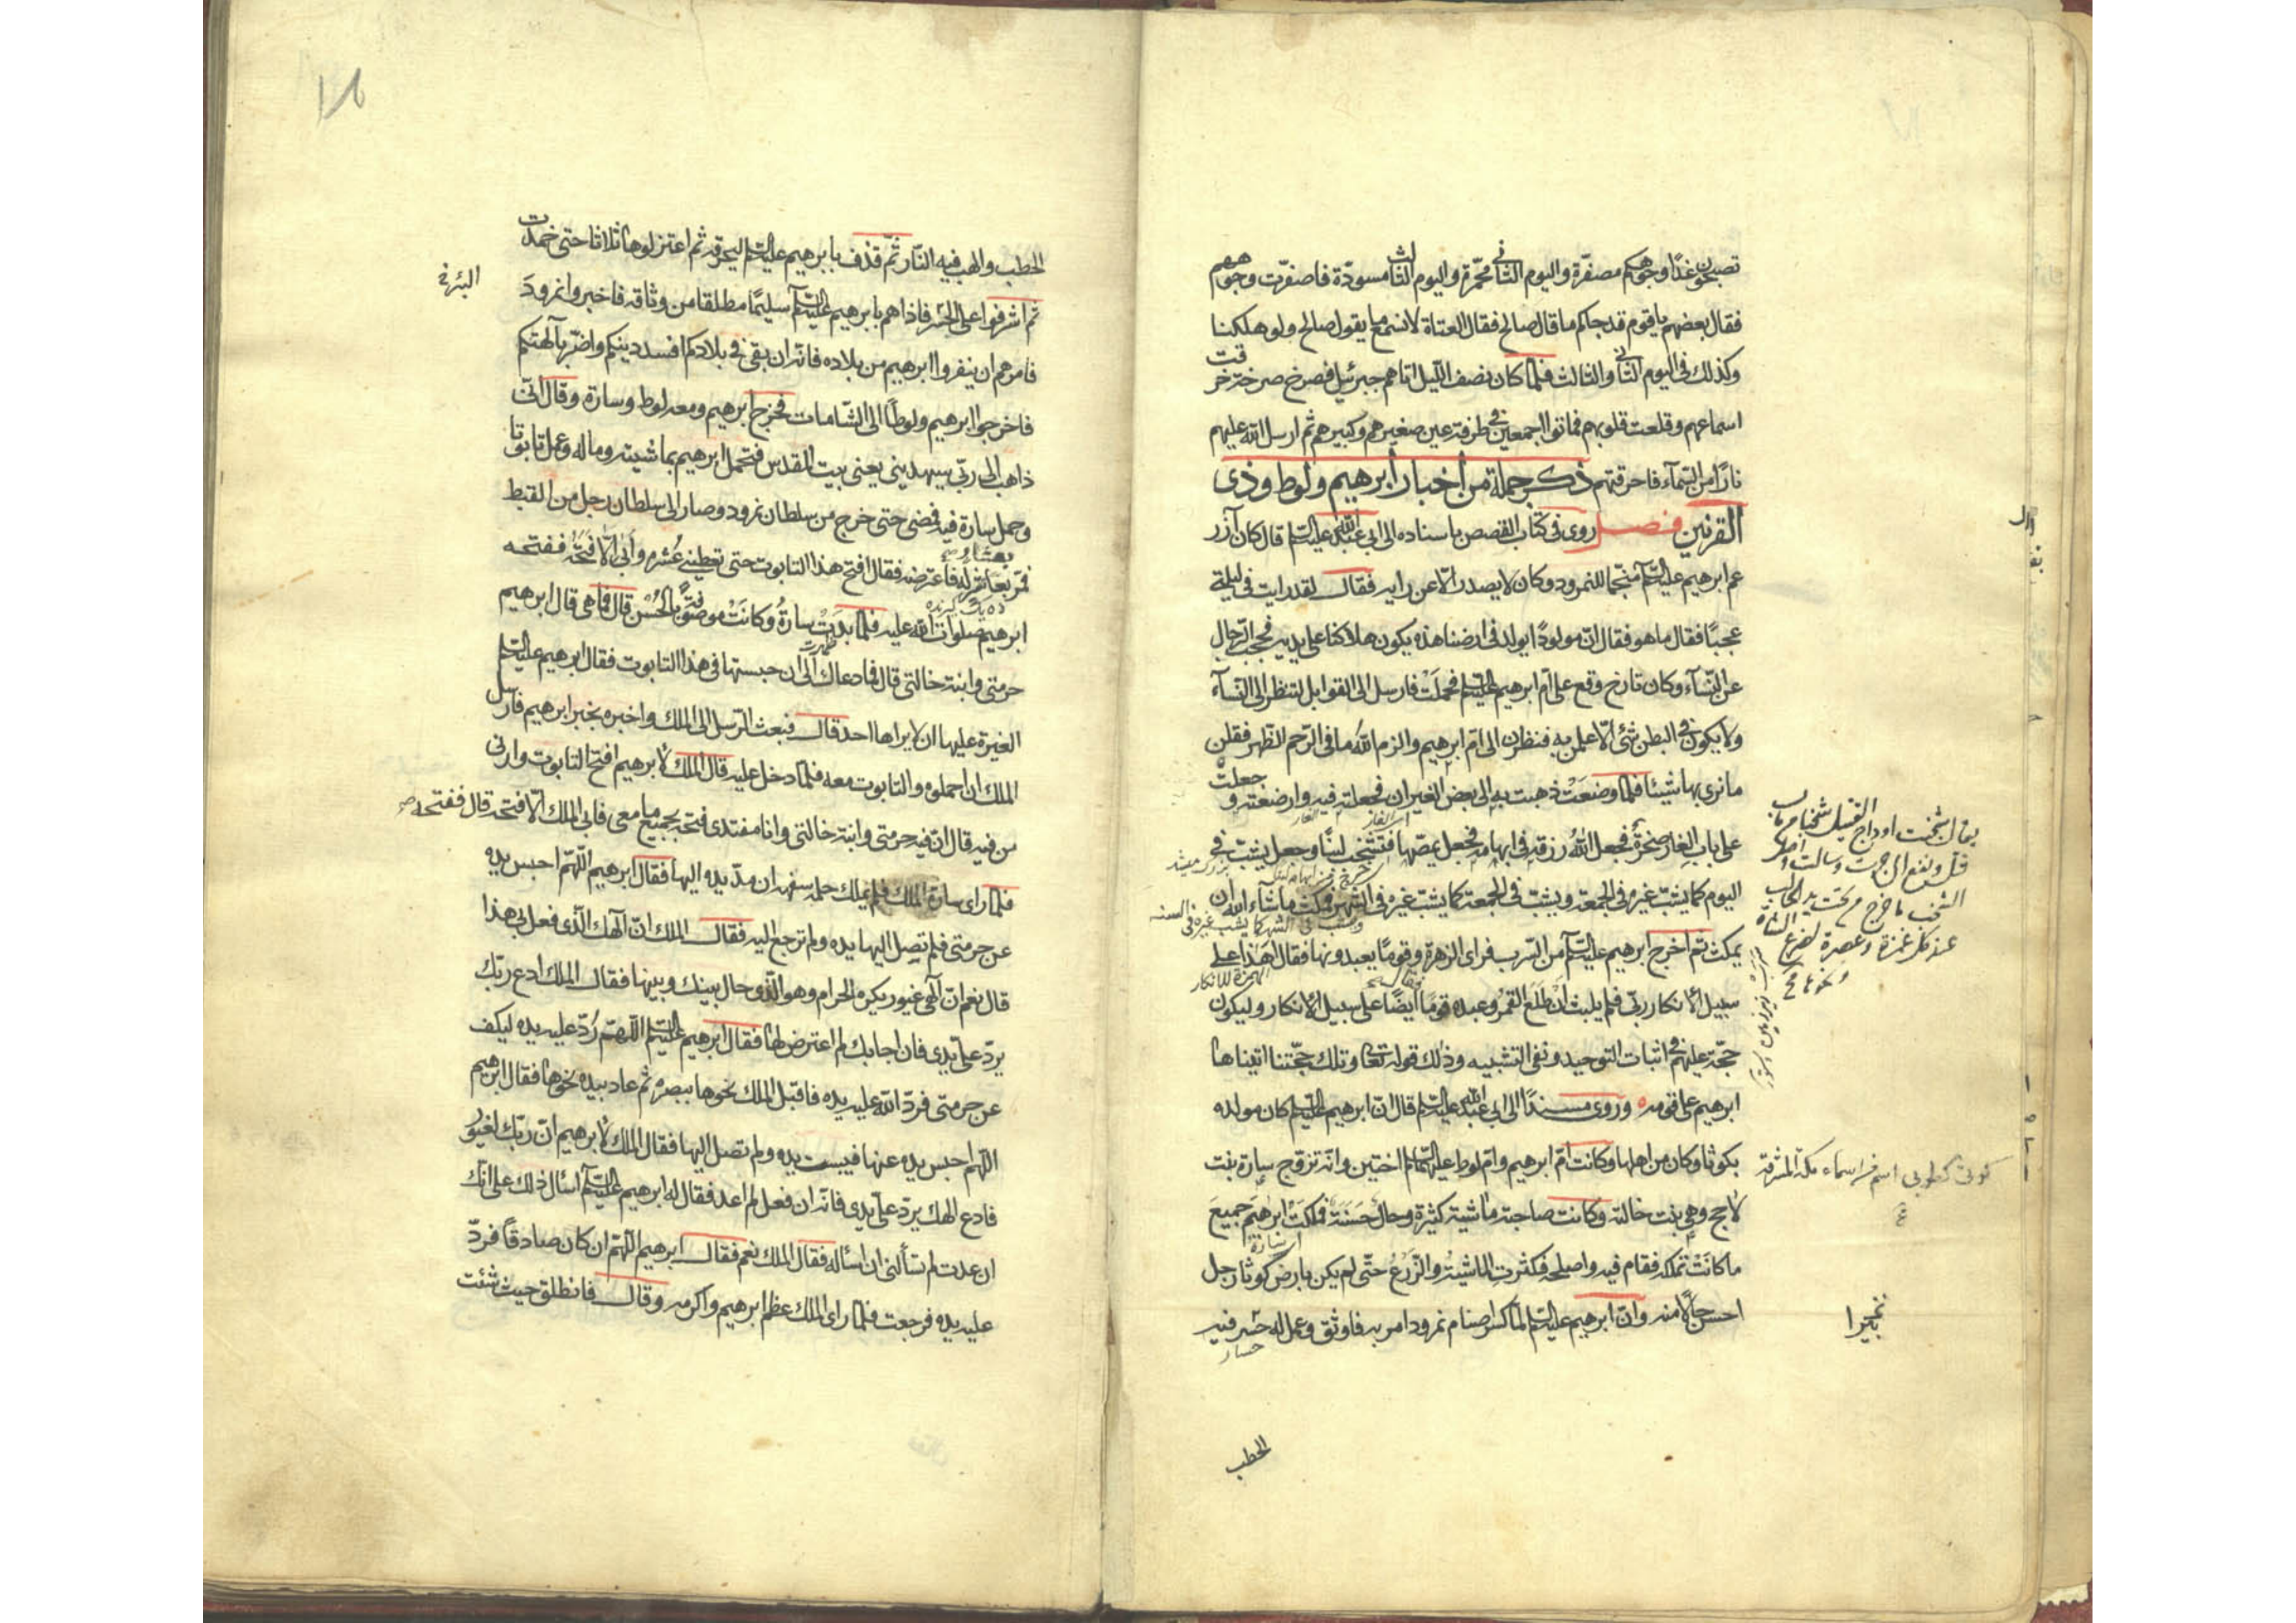 تصبحون غدا وجوهكم مصفرّة واليوم الثانى محمّرة واليوم الثالث مسودّة فاصفرّت وجوههم
فقال بعضهم يا قوم قد جاكم ما قال صالح فقال العتاة لا نسمع ما يقول صالح ولو هلكنا
وكذلك فى اليوم الثانى والثالث فلمّا كان نصف اللّيل اتاهم جبرئيل فصرخ صرخة خرقت
اسماعهم وقلعت قلوبهم فماتوا اجمعين فى طرفة عين صغيرهم وكبيرهم ثم ارسل الله عليهم
نارًا من السّمآء فاحرقتهم ذكر جملة من أخبار أبرهيم ولوط وذى
القرنين فصل روى فى كتاب القصص باسناده الى ابى عبد الله عليه السلم قال كان آزر
عم ابرهيم عليه السلم منجّما للنمرود وكان لا يصدر الّا عن رايه فقال لقد رايت فى ليلة
عجبًا فقال ما هو فقال انّ مولودًا يولد فى ارضنا هذه يكون هلاكنا على يديه فحجب الرّجال
عن النّسآء وكان تارخ وقع على امّ ابرهيم عليه السلم فحملت فارسل الى القوابل لتنظر الى النّسآء
ولا يكون فى البطن شئ الّا علمن به فنظرن الى امّ ابرهيم والزم الله ما فى الرّحم الظهر فقلن
ما نرى بها شيئا فلمّا وضعت ذهبت به الى بعض الغيران فجعلته فيه وارضعته وجعلت
على باب الغار صخرةً فجعل الله رزقه فى ابهامه فجعل يمصّها فتشخب لبنًا وجعل يشبّ فى
اليوم كما يشبّ غيره فى الجمعة ويشبّ فى الجمعة كما يشبّ غيره فى الشهر فمكث ما شآء الله ان
يمكث ثم اخرج ابرهيم عليه السلم من السّرب فراى الزهرة وقومًا يعبدونها فقال أهذا على
سبيل الأنكار ربّى فلم يلبث ان طلع القمر وعبده قومًا أيضًا على سبيل الأنكار وليكون
حجّة عليهم فى اثبات التوحيد ونفى التشبيه وذلك قوله تعا وتلك حجّتنا اتيناها
ابرهيم على قومه وروى مسندًا الى ابى عبد الله عليه السلم قال انّ ابرهيم عليه السلم كان مولده
بكوثا وكان من اهلها وكانت امّ ابرهيم وامّ لوط عليهما السلم اختين وانّه تزوّج سارة بنت
لاحج وهى بنت خالته وكانت صاحبة ماشية كثيرة وحال حسنة فملكت ابرهيم جميع
ما كانت تملكه فقام فيه واصلحه فكثرت الماشية والزّرع حتّى لم يكن بارض كوثا رجل
احسن حالًا منه وانّ ابرهيم عليه السلم لمّا كسّر اصنام نمرود امر به فاوثق وعمل له حير فيه
الحطب
كوثى كطوبى اسم من اسماء مكة المشرفة
الحطب والهب فيه النّار ثمّ قذف بابرهيم عليه السلم ليحرقه ثم اعتزلوها ثلاثا حتى خمدت
ثم اشرفوا على الحير فاذا هم بابرهيم عليه السلم سليمًا مطلقا من وثاقه فاخبروا نمرود
فامرهم ان ينفروا ابرهيم من بلاده فانّه ان بقى فى بلادكم افسد دينكم واضرّ بآلهتكم
فاخرجوا ابرهيم ولوطًا الى الشّامات فخرج ابرهيم ومعه لوط وسارة وقال انّى
ذاهب الى ربّى سيهدينى يعنى بيت المقدس فتحمل ابرهيم بماشيته وماله وعمل تابوتا
وحمل سارة فيه فمضى حتى خرج من سلطان نمرود وصار الى سلطان رجل من القبط
فمرّ بعاشر له فاعترضه فقال افتح هذا التابوت حتى تعطينى عُشره وابى الّا فتحه ففتحه
ابرهيم صلوات الله عليه فلمّا بدت سارة وكانت موصوفة بالحُسْن قال ما هى قال ابرهيم
حرمتى وابنة خالتى قال فما دعاك الى ان حبستها فى هذا التابوت فقال ابرهيم عليه السلم
الغيرة عليها ان لا يراها احد قال فبعث الرّسل الى الملك واخبره بخبر ابرهيم فارسل
الملك ان احملوه والتابوت معه فلمّا دخل عليه قال الملك لابرهيم افتح التابوت وارنى
من فيه قال انّ فيه حرمتى وابنة خالتى وانا مفتدى فتحه بجميع ما معى فابى الملك الّا فتحه قال ففتحه
فلمّا راى سارة الملك فلم يملك حلمه سفهه ان مدّ يده اليها فقال ابرهيم اللّهمّ احبس يده
عن حرمتى فلم تصل اليها يده ولم ترجع اليه فقال الملك انّ الهك الّذى فعل بى هذا
قال نعم انّ آلهى غيور يكره الحرام وهو الّذى حال بينك وبينها فقال الملك ادع ربّك
يردّ علىّ يدى فان اجابك لم اعترض لها فقال ابرهيم عليه السلم اللّهمّ رُدّ عليه يده ليكف
عن حرمتى فردّ الله عليه يده فاقبل الملك نحوها ببصره ثم عاد بيده نحوها فقال ابرهيم
اللّهم احبس يده عنها فيبست يده ولم تصل اليها فقال الملك لابرهيم انّ ربّك لغيور
فادع الهك يردّ علىّ يدى فانّه ان فعل لم اعد فقال له ابرهيم عليه السلم اسئل ذلك على انّك
ان عدت لم تسألنى ان اسأله فقال الملك نعم فقال ابرهيم اللّهمّ ان كان صادقًا فردّ
عليه يده فرجعت فلمّا راى الملك عظم ابرهيم واكرمه وقال فانطلق حيث شئت